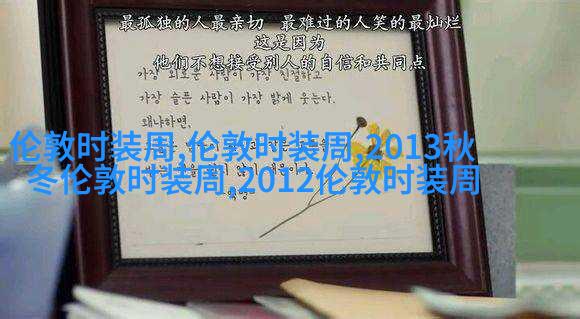 最孤独的人最亲切 最难过的人笑的最灿烂
这是因为
他们不想接受别人的自信和共同点
가장 외로운 사람이 가장 친절하고
가장 슬픈 사람이 가장 밝게 웃는다.
왜냐하면,
伦敦时装周,伦敦时装周,2013秋
冬伦敦时装周,2012伦敦时装周